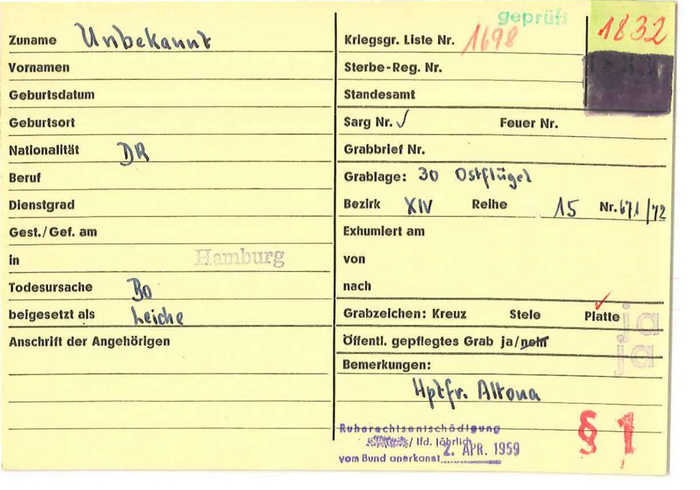 geprüft
1832
Zuname Unbekannt
Kriegsgr. Liste Nr. 1698
Vornamen
Sterbe-Reg. Nr.
Geburtsdatum
Standesamt
Geburtsort
Sarg Nr. ✓ Feuer Nr.
Nationalität DR
Grabbrief Nr.
Beruf
Grablage: 30 Ostflügel
Dienstgrad
Bezirk XIV Reihe 15 Nr. 671/72
Gest./Gef. am
Exhumiert am
in Hamburg
von
Todesursache Bo
nach
beigesetzt als Leiche
Grabzeichen: Kreuz Stele Platte
ja
Anschrift der Angehörigen
Öffentl. gepflegtes Grab ja/nein
ja
Bemerkungen:
Hptfr. Altona
§ 1
Ruherechtsentschädigung
/ lfd. jährlich
vom Bund anerkannt 2. APR. 1959